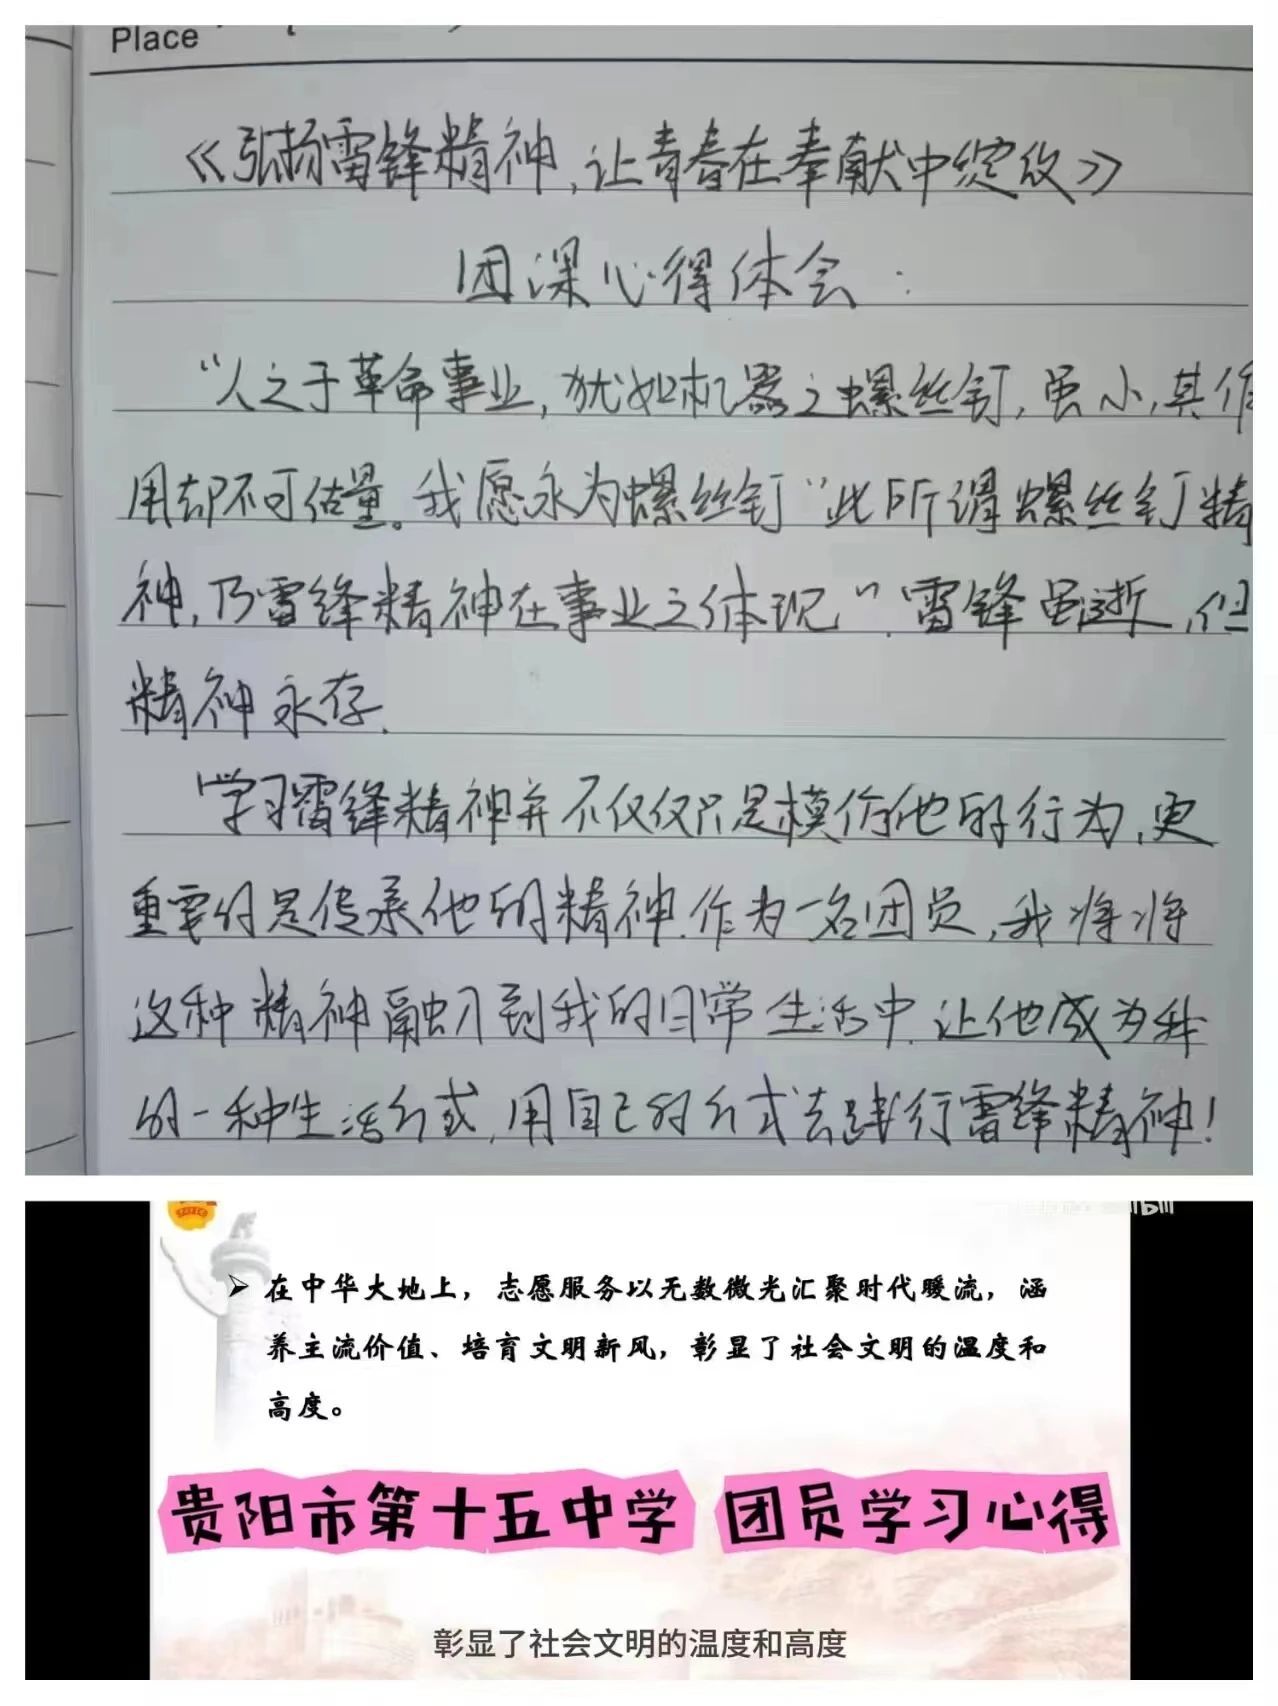 Place
《弘扬雷锋精神,让青春在奉献中绽放》
团课心得体会:
“人之于革命事业,犹如机器之螺丝钉,虽小,其作
用却不可估量。我愿永为螺丝钉”此所谓螺丝钉精
神,乃雷锋精神在事业之体现”.雷锋虽逝,但
精神永存.
学习雷锋精神并不仅仅只是模仿他的行为,更
重要的是传承他的精神.作为一名团员,我将将
这种精神融入到我的日常生活中.让他成为我
的一种生活方式,用自己的方式去践行雷锋精神!
➢ 在中华大地上，志愿服务以无数微光汇聚时代暖流，涵
养主流价值、培育文明新风，彰显了社会文明的温度和
高度。
贵阳市第十五中学 团员学习心得
彰显了社会文明的温度和高度